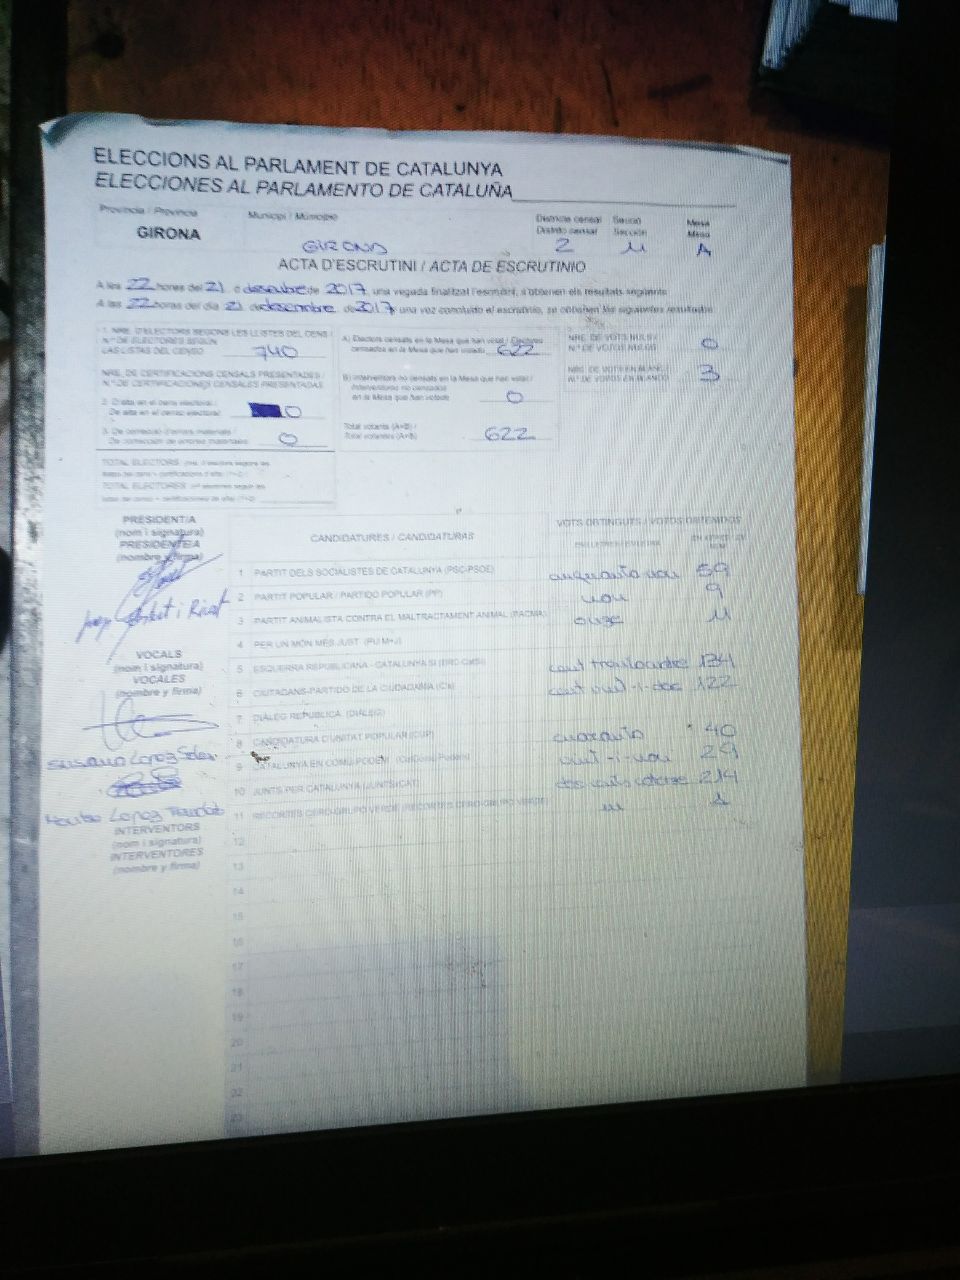 ELECCIONS AL PARLAMENT DE CATALUNYA
ELECCIONES AL PARLAMENTO DE CATALUÑA
Província / Provincia
Municipi / Municipio
Districte censal
Secció
Mesa
Distrito censal
Sección
Mesa
GIRONA
GIRONA
2
11
A
ACTA D'ESCRUTINI / ACTA DE ESCRUTINIO
A les 22 hores del 21 de desembre de 2017, una vegada finalitzat l'escrutini, s'obtenen els resultats següents
A las 22 horas del día 21 de desembre de 2017 y una vez concluido el escrutinio, se obtienen los siguientes resultados
1. NRE. D'ELECTORS SEGONS LES LLISTES DEL CENS /
N.º DE ELECTORES SEGÚN
LAS LISTAS DEL CENSO
740
NRE. DE CERTIFICACIONS CENSALS PRESENTADES /
N.º DE CERTIFICACIONES CENSALES PRESENTADAS
2. D'alta en el cens electoral /
De alta en el censo electoral
0
3. De correcció d'errors materials /
De corrección de errores materiales
0
A) Electors censats en la Mesa que han votat / Electores
censados en la Mesa que han votado
622
B) Interventors no censats en la Mesa que han votat /
Interventores no censados
en la Mesa que han votado
0
Total votants (A+B) /
Total votantes (A+B)
622
NRE. DE VOTS NULS /
N.º DE VOTOS NULOS
0
NRE. DE VOTS EN BLANC /
N.º DE VOTOS EN BLANCO
3
TOTAL ELECTORS
TOTAL ELECTORES
PRESIDENT/A
(nom i signatura)
PRESIDENTE/A
(nombre y firma)
VOCALS
(nom i signatura)
VOCALES
(nombre y firma)
Susana Lopez
Lopez
INTERVENTORS
(nom i signatura)
INTERVENTORES
(nombre y firma)
CANDIDATURES / CANDIDATURAS
VOTS OBTINGUTS / VOTOS OBTENIDOS
1 PARTIT DELS SOCIALISTES DE CATALUNYA (PSC-PSOE) cinquanta nou 59
2 PARTIT POPULAR / PARTIDO POPULAR (PP) nou 9
3 PARTIT ANIMALISTA CONTRA EL MALTRACTAMENT ANIMAL (PACMA) onze 11
4 PER UN MÓN MÉS JUST (PUM+J)
5 ESQUERRA REPUBLICANA - CATALUNYA SÍ (ERC-CatSí) 134
6 CIUTADANS-PARTIDO DE LA CIUDADANÍA (C's) cent vint-i-dos 122
7 DIÀLEG REPUBLICÀ (DIÀLEG)
8 CANDIDATURA D'UNITAT POPULAR (CUP) 40
9 CATALUNYA EN COMÚ-PODEM (CatComú-Podem) vint-i-nou 29
10 JUNTS PER CATALUNYA (JUNTSxCAT) 214
11 RECORTES CERO-GRUPO VERDE (RECORTES CERO-GRUPO VERDE) un 1
12
13
14
15
16
17
18
19
20
21
22
23